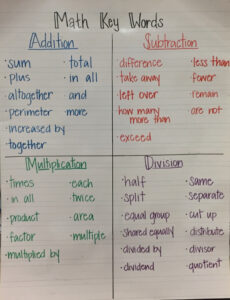 Math Key Words
Addition
·sum ·total
·plus ·in all
·altogether ·and
·perimeter ·more
·increased by
·together
Subtraction
·difference ·less than
·take away ·fewer
·left over ·remain
·how many more than ·are not
·exceed
Multiplication
·times ·each
·in all ·twice
·product ·area
·factor ·multiple
·multiplied by
Division
·half ·same
·split ·separate
·equal group ·cut up
·shared equally ·distribute
·divided by ·divisor
·dividend ·quotient